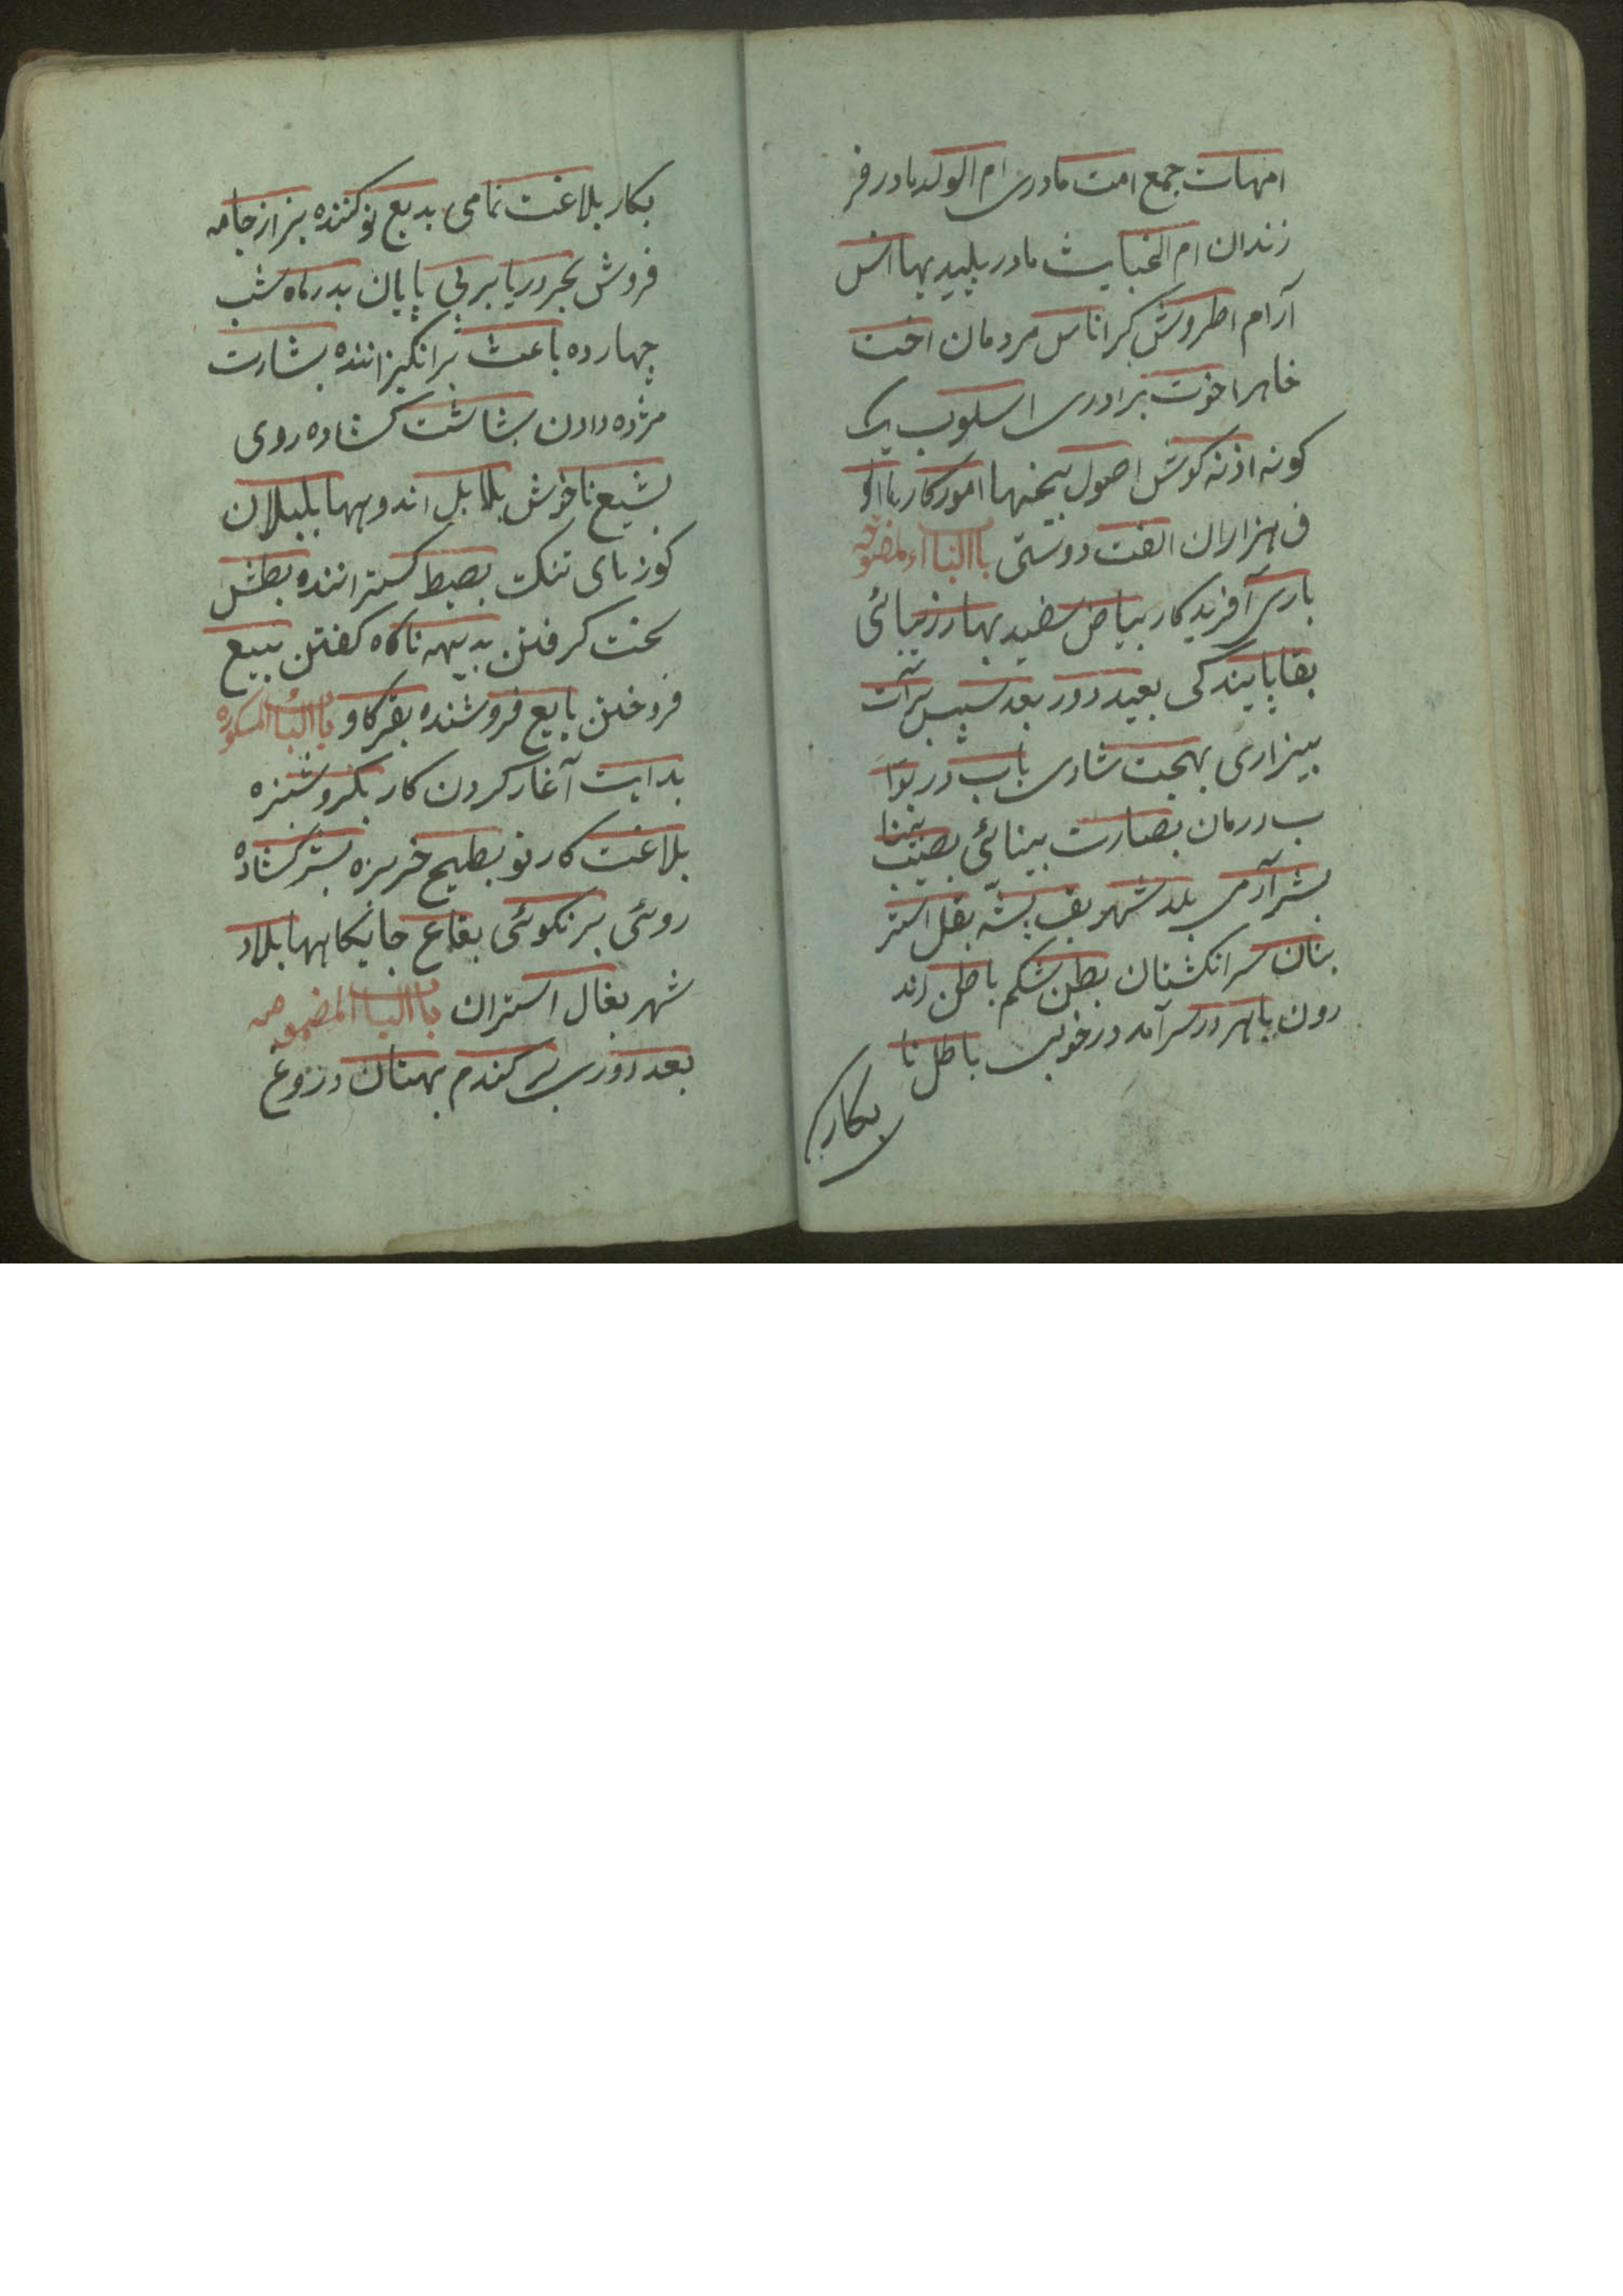 امهات جمع امت مادری ام الولد مادر فر
زندان ام الخبایث مادر پلیدیها انس
آرام اطروش کر اناس مردمان اخت
خاهر اخوت برادری اسلوب یک
کونه اذنه کوش اصول بیخها امور کارها الو
ف هزاران الفت دوستی باالباء المفتوحه
باری آفریدکار بیاض سفید بها رزیبائی
بقا پایندکی بعید دور بعد سپس برآئت
بیزاری بهجت شادی باب در بوّا
ب دربان بصارت بینائی بصیر بینا
بشر آدمی بلد شهر بق پشّه بغل استر
بنان سرانکشتان بطن شکم باطن اند
رون باهر در سرآمد در خوبی باطل نا
بکار
بکار بلاغت تمامی بدیع نو کننده بزاز جامه
فروش بحر دریا بر بی پایان بدر ماه شب
چهارده باعث برانکیزاننده بشارت
مژده دادن بشاشت کشاده روی
بشیع ناخوش بلابل اندوهها بلبلان
کوزهای تنک بصیط کستراننده بطش
سخت کرفتن بدیهه ناکاه کفتن بیع
فروختن بایع فروشنده بقر کاو باالباء المکسوره
بدایت آغاز کردن کار بکر دوشیزه
بلاغت کار نو بطیح خربزه بشر کشاده
روئی بر نکوئی بقاع جایکاهها بلاد
شهر بغال استران باالباء المضمومه
بعد دوری بر کندم بهتان دروغ